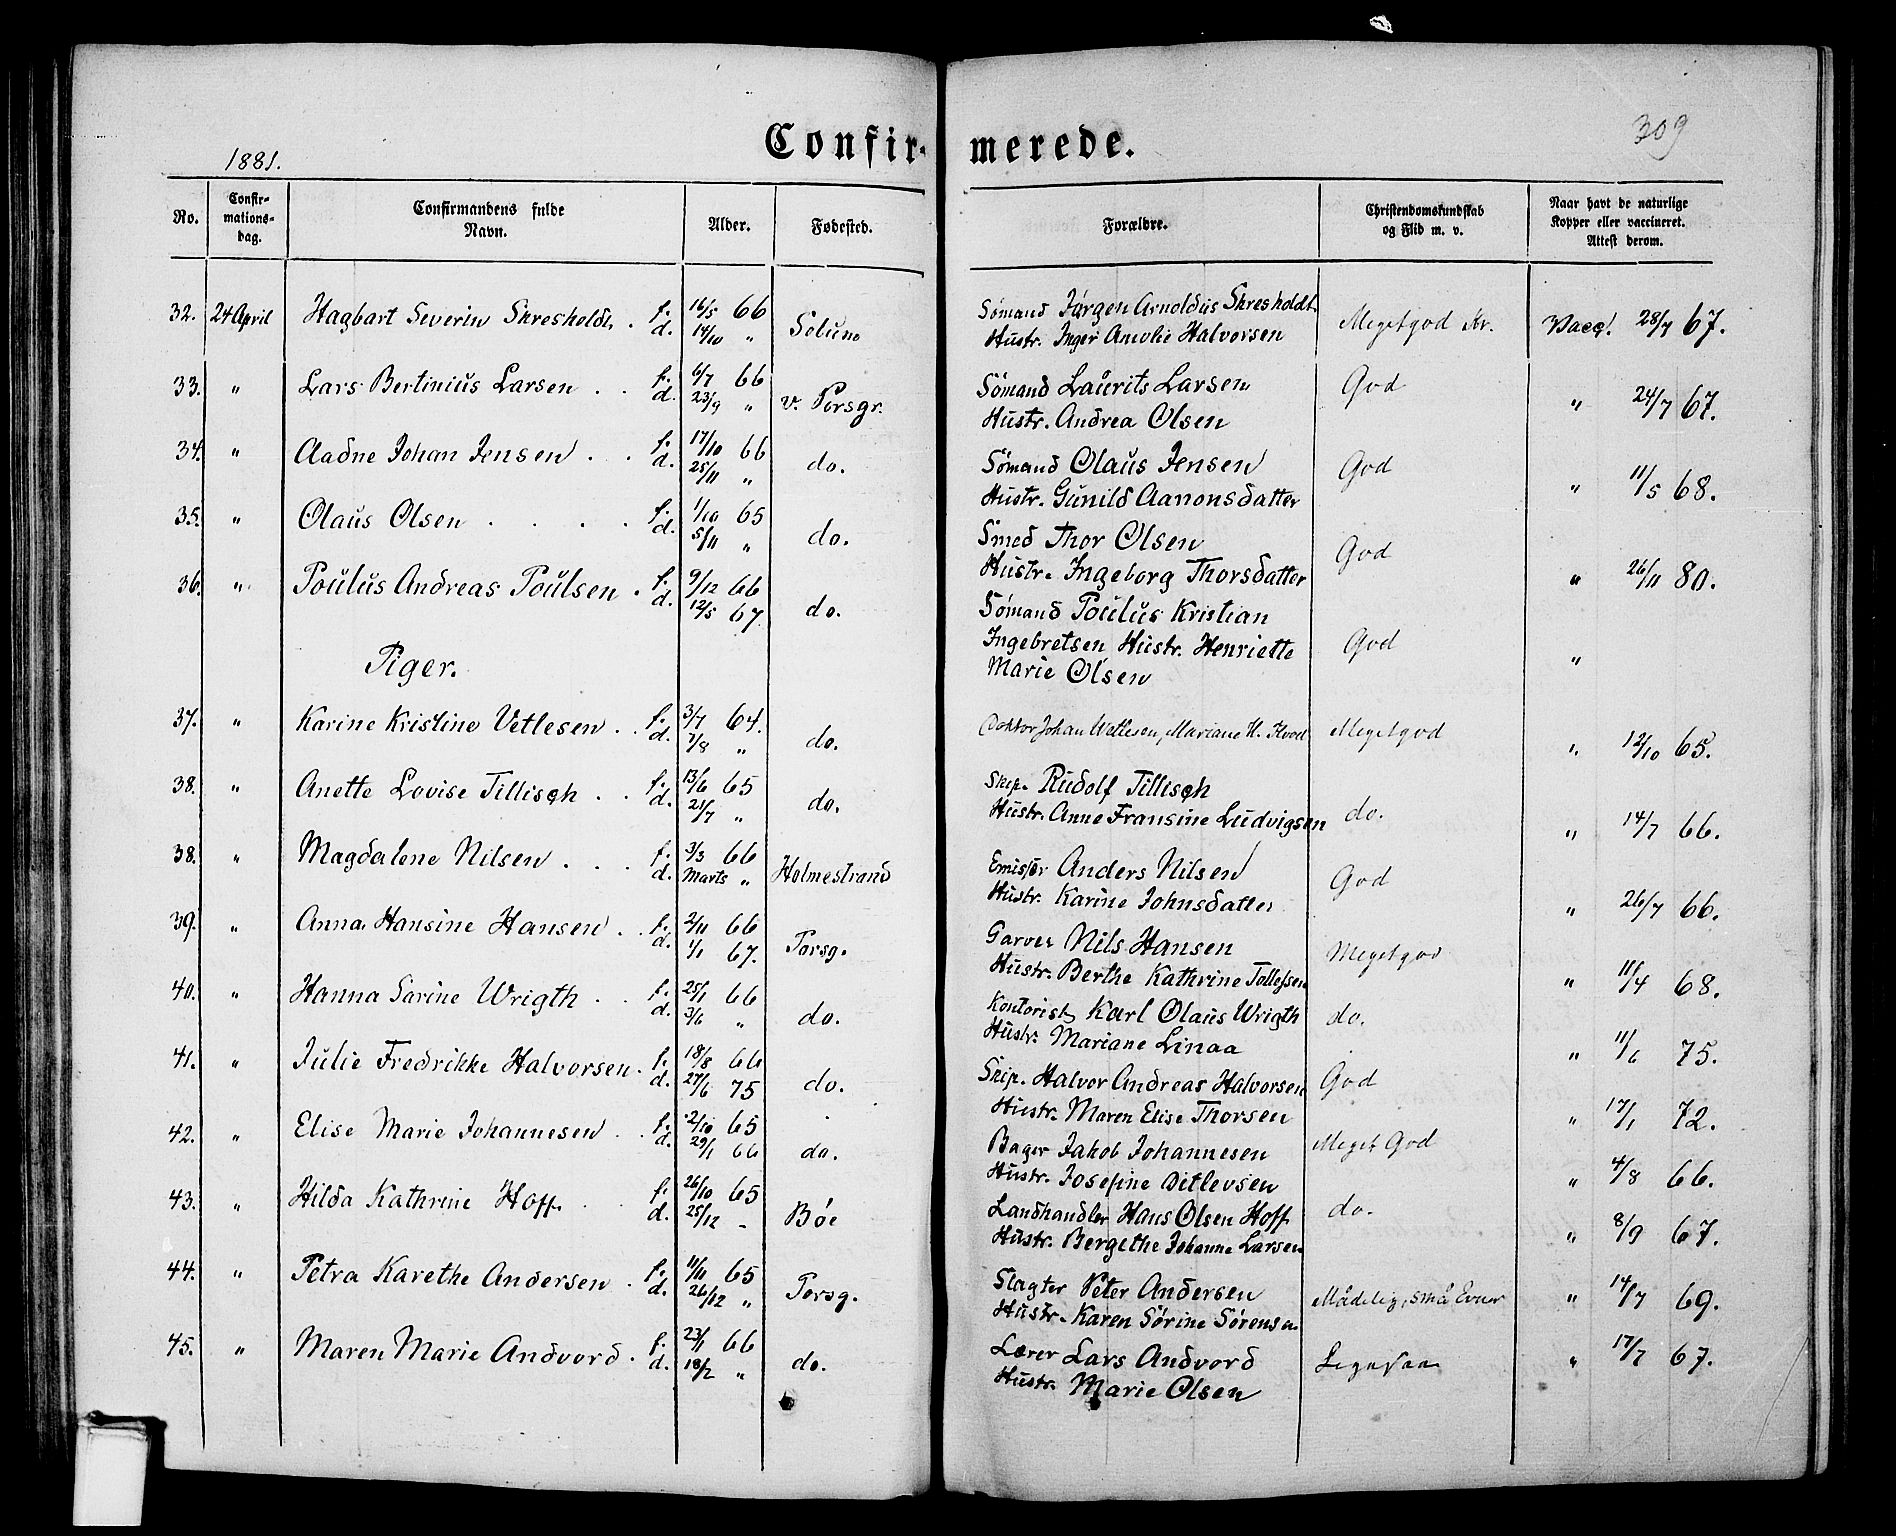 Confirmerede.
309
1881.
No. Confirmationsdag. Confirmandens fulde Navn. Alder. Fødested. Forældre. Christendomskundskab og Flid m. v. Naar havt de naturlige Kopper eller vaccineret. Attest derom.
32. 24 April Hagbart Severin Skresholdt. f. 16/5 66 Sømand Jørgen Arnoldus Skresholdt
d. 14/10 " Hustr. Inger Amalie Halvorsen Megetgod Kr. Vacc. 28/7 67.
33. " Lars Bertinius Larsen . . f. 6/7 66 Sømand Laurits Larsen God
d. 23/9 " v. Porsgr. Hustr. Andrea Olsen " 24/7 67.
34. " Aadne Johan Jensen . . f. 17/10 66 Sømand Olaus Jensen God
d. 25/11 " do. Hustr. Gunild Aanonsdatter " 11/5 68.
35. " Olaus Olsen . . . . f. 1/10 65 Smed Thor Olsen God
d. 5/11 " do. Hustr. Ingeborg Thorsdatter " 26/11 80.
36. " Poulus Andreas Poulsen . f. 9/12 66 Sømand Poulus Kristian
d. 12/5 67. do. Ingebretsen Hustr. Henriette God "
Marie Olsen
Piger.
37. " Karine Kristine Vetlesen . . f. 3/7 64. Doktor Johan Wetlesen, Mariane H. Megetgod
d. 7/8 " do. " 12/10 65.
38. " Anette Lovise Tillisch . . f. 13/6 65 Skip. Rudolf Tillisch
d. 21/7 " do. Hustr. Anne Fransine Ludvigsen do. " 14/7 66.
38. " Magdalene Nilsen . . . f. 3/3 66 Emisser Anders Nilsen God
d. Marts " Holmestrand Hustr. Karine Johnsdatter " 26/7 66.
39. " Anna Hansine Hansen . . f. 2/11 66 Garver Nils Hansen Megetgod
d. 1/1 67. Porsg. Hustr. Berthe Kathrine Tollefsen " 11/4 68.
40. " Hanna Sarine Wrigth . . f. 25/1 66 Kontorist Karl Olaus Wrigth do.
d. 3/6 " do. Hustr. Mariane Linaa " 11/6 75.
41. " Julie Fredrikke Halvorsen . f. 18/8 66 Skip. Halvor Andreas Halvorsen God
d. 27/6 75 do. Hustr. Maren Elise Thorsen " 17/1 72.
42. " Elise Marie Johannesen . . f. 2/10 65 Bager Jakob Johannesen Meget God
d. 29/1 66 do. Hustr. Josefine Ditlevsen " 4/8 66.
43. " Hilda Kathrine Hoff . . f. 26/10 65 Landhandler Hans Olsen Hoff do.
d. 25/12 - Bøe Hustr. Bergethe Johanne Larsen " 8/9 67.
44. " Petra Karethe Andersen . f. 11/11 65 Slagter Peter Andersen Mådelig, små Evner
d. 26/12 " Porsg. Hustr. Karen Sørine Sørensen " 14/7 69.
45. " Maren Marie Andvord . f. 23/1 66 Lærer Lars Andvord
d. 18/2 " do. Hustr. Marie Olsen " 17/7 67.